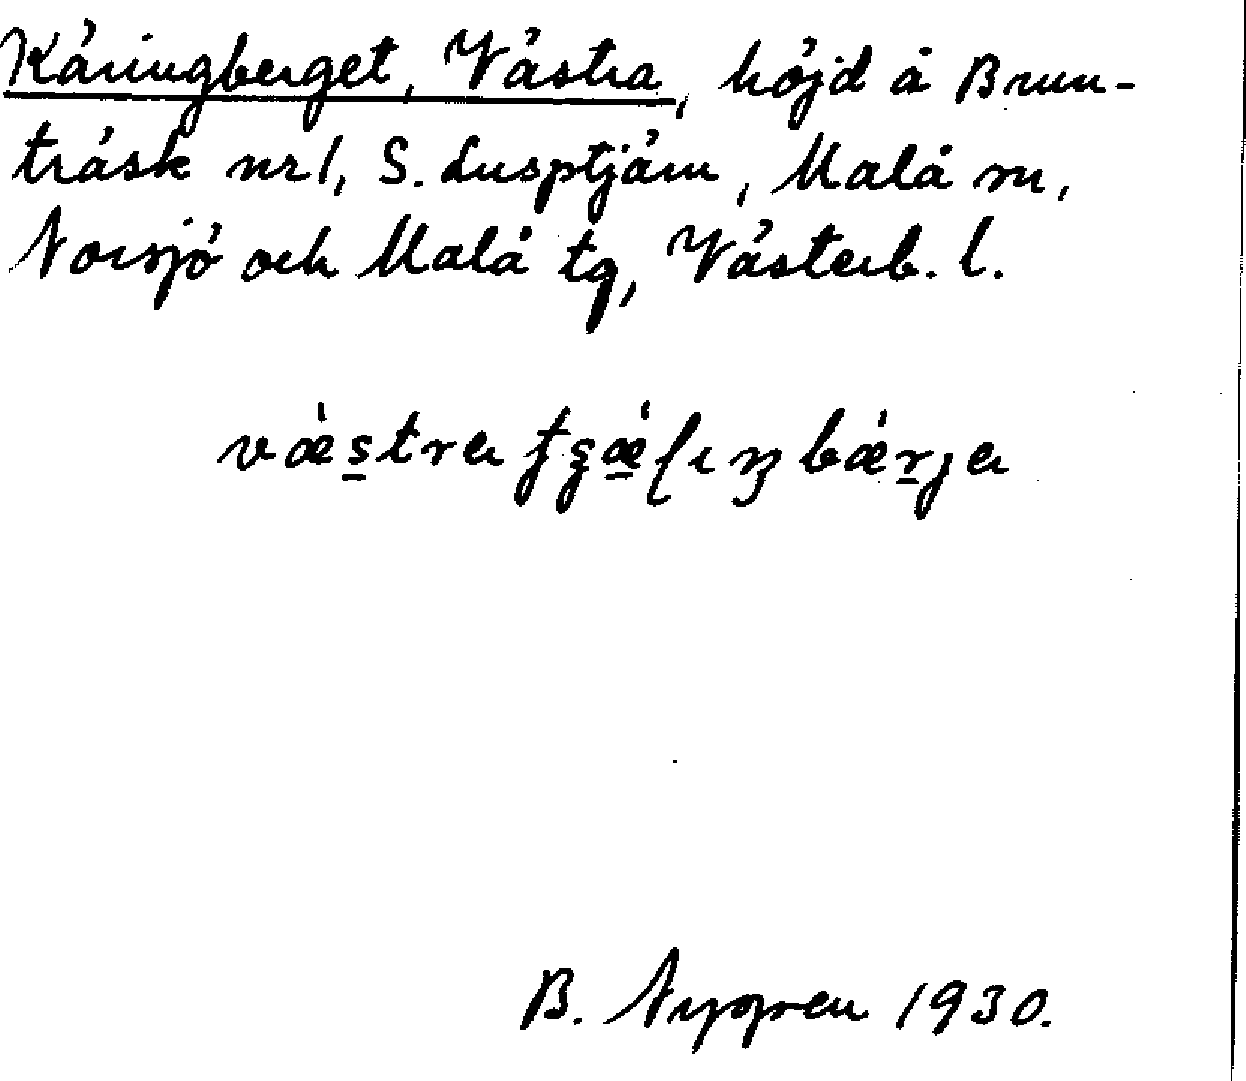 Käringberget, Västra, höjd å Brun-
träsk nr 1, S. Lusptjärn, Malå sn,
Norsjö och Malå tg, Västerb. l.
væ̀s̲tra
B. Nygren 1930.